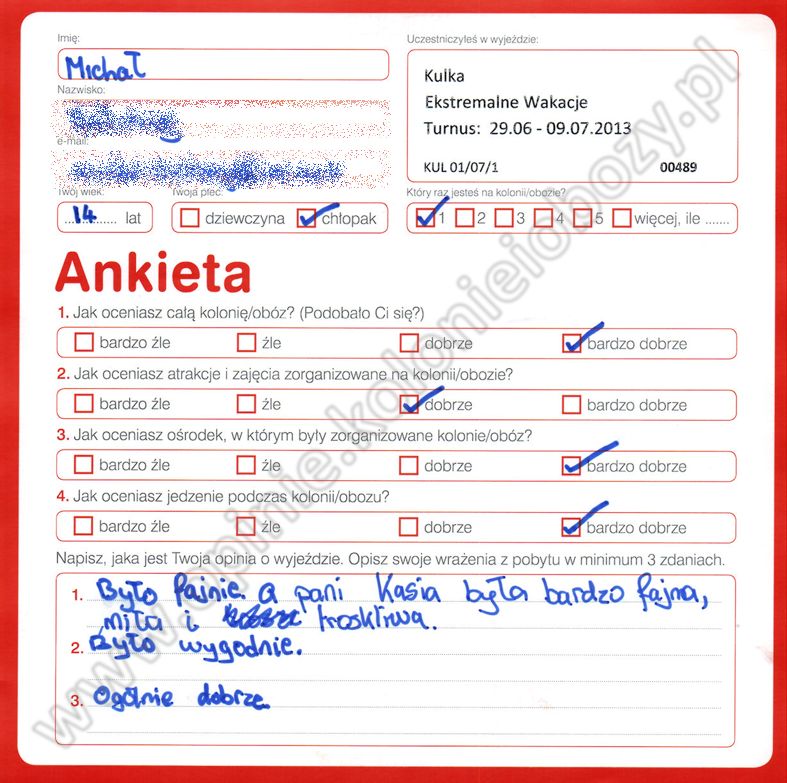 Imię:
Michał
Nazwisko:
e-mail:
Twój wiek:
14 lat
Twoja płeć:
dziewczyna chłopak
Uczestniczyłeś w wyjeździe:
Kulka
Ekstremalne Wakacje
Turnus: 29.06 - 09.07.2013
KUL 01/07/1 00489
Który raz jesteś na kolonii/obozie?
1 2 3 4 5 więcej, ile .......
Ankieta
1. Jak oceniasz całą kolonię/obóz? (Podobało Ci się?)
bardzo źle źle dobrze bardzo dobrze
2. Jak oceniasz atrakcje i zajęcia zorganizowane na kolonii/obozie?
bardzo źle źle dobrze bardzo dobrze
3. Jak oceniasz ośrodek, w którym były zorganizowane kolonie/obóz?
bardzo źle źle dobrze bardzo dobrze
4. Jak oceniasz jedzenie podczas kolonii/obozu?
bardzo źle źle dobrze bardzo dobrze
Napisz, jaka jest Twoja opinia o wyjeździe. Opisz swoje wrażenia z pobytu w minimum 3 zdaniach.
1. Było fajnie. a pani Kasia była bardzo fajna,
miła i troskliwa.
2. Było wygodnie.
3. Ogólnie dobrze.
www.opinie.kolonieiobozy.pl